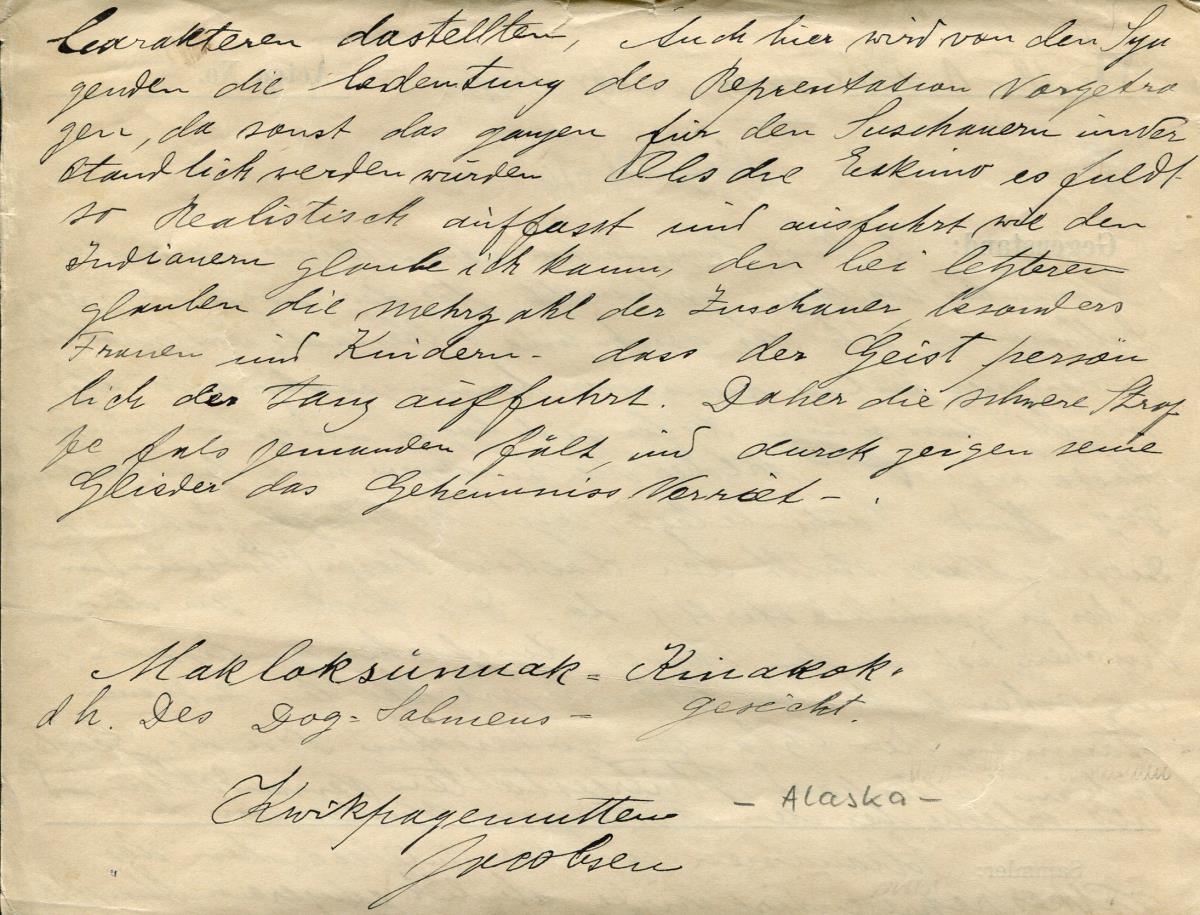 Carakteren dastellten, Auch hier wird von den Syn
genden die bedeutung des Representation Vorgetra
gen, da sonst das ganzen für den Suschauern unver
standlich werden würden Ob die Eskimo es
so Realistisch auffasst und ausfuhrt wie den
Indianern glaube ich kaum, den bei letzteren
glauben die mehrzahl der Zuschauer, besonders
Frauen und Kindern - dass der Geist persön
lich der tanz aufführt. Daher die schwere Straf
fe fals jemanden fält, und durch zeigen seine
Glieder das Geheimniss Verriet - .
Makloksúnuak = Kinakok.
d h. Des Dog = Salmens = gesicht.
Kwikpagemutten - Alaska -
Jacobsen
Gegenstand:
Sammler: